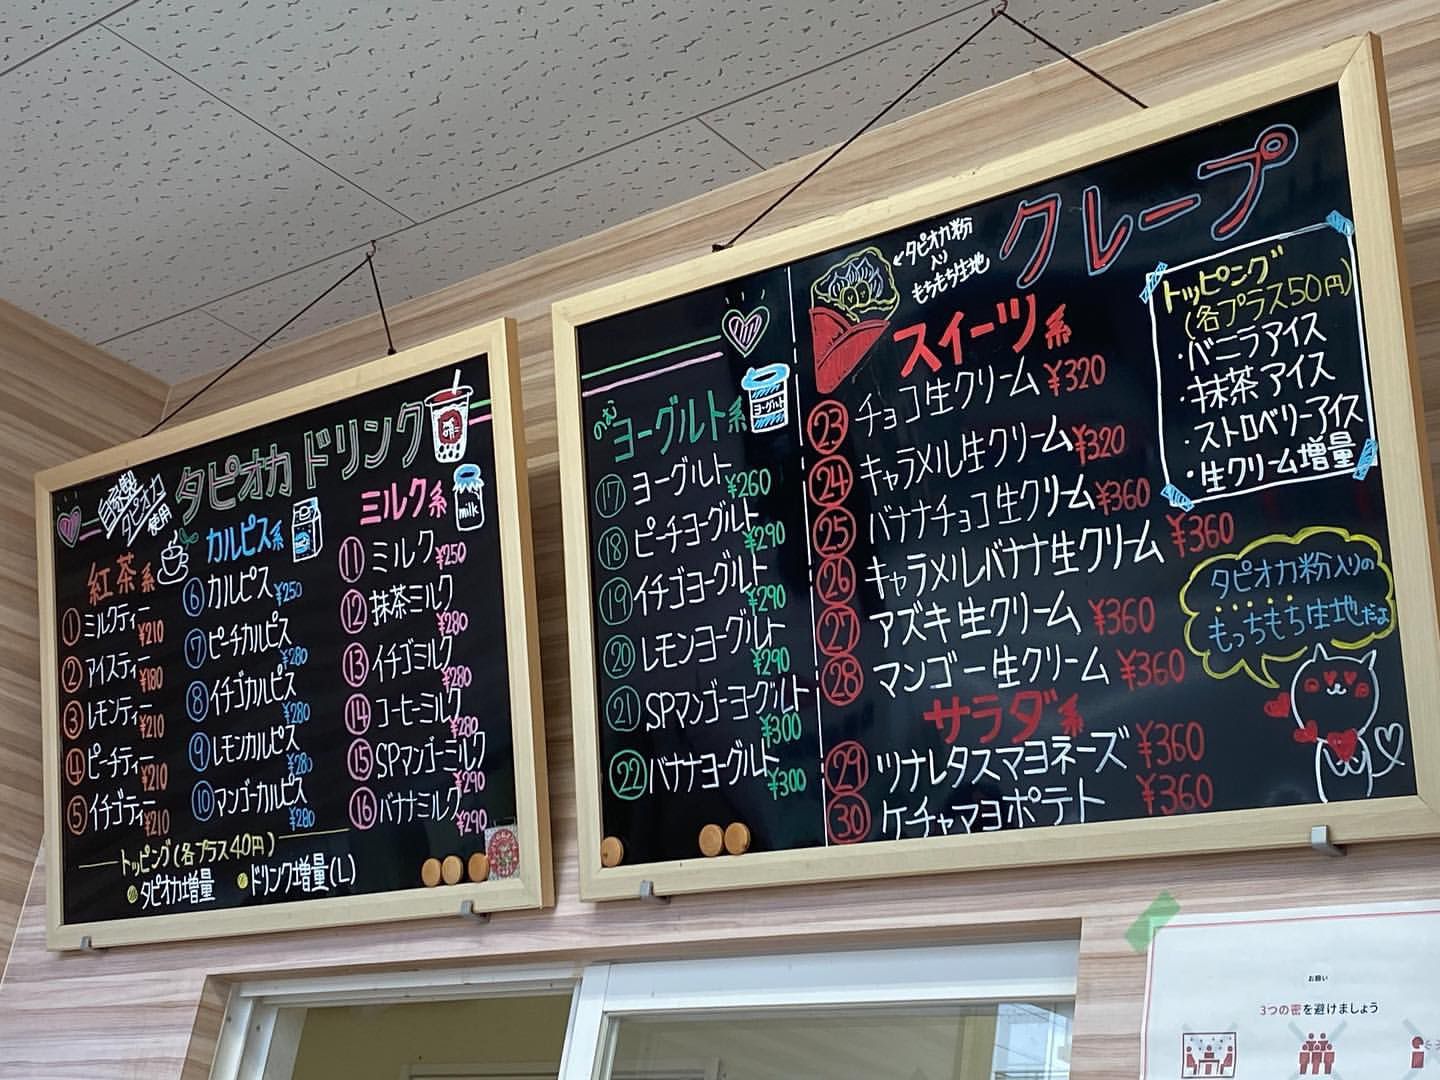 自家製
タピオカ
使用
タピオカドリンク
紅茶系
① ミルクティー ¥210
② アイスティー ¥180
③ レモンティー ¥210
④ ピーチティー ¥210
⑤ イチゴティー ¥210
カルピス系
⑥ カルピス ¥250
⑦ ピーチカルピス ¥280
⑧ イチゴカルピス ¥280
⑨ レモンカルピス ¥280
⑩ マンゴーカルピス ¥280
ミルク系
milk
⑪ ミルク ¥250
⑫ 抹茶ミルク ¥280
⑬ イチゴミルク ¥280
⑭ コーヒーミルク ¥280
⑮ SPマンゴーミルク ¥290
⑯ バナナミルク ¥290
トッピング(各プラス40円)
タピオカ増量 ドリンク増量(L)
のむ
ヨーグルト系
ヨーグルト
⑰ ヨーグルト ¥260
⑱ ピーチヨーグルト ¥290
⑲ イチゴヨーグルト ¥290
⑳ レモンヨーグルト ¥290
㉑ SPマンゴーヨーグルト ¥300
㉒ バナナヨーグルト ¥300
←タピオカ粉
入り
もちもち生地
クレープ
スイーツ系
㉓ チョコ生クリーム ¥320
㉔ キャラメル生クリーム ¥320
㉕ バナナチョコ生クリーム ¥360
㉖ キャラメルバナナ生クリーム ¥360
㉗ アズキ生クリーム ¥360
㉘ マンゴー生クリーム ¥360
サラダ系
㉙ ツナレタスマヨネーズ ¥360
㉚ ケチャマヨポテト ¥360
トッピング
(各プラス50円)
・バニラアイス
・抹茶アイス
・ストロベリーアイス
・生クリーム増量
タピオカ粉入りの
もっちもち生地だよ
お願い
3つの密を避けましょう